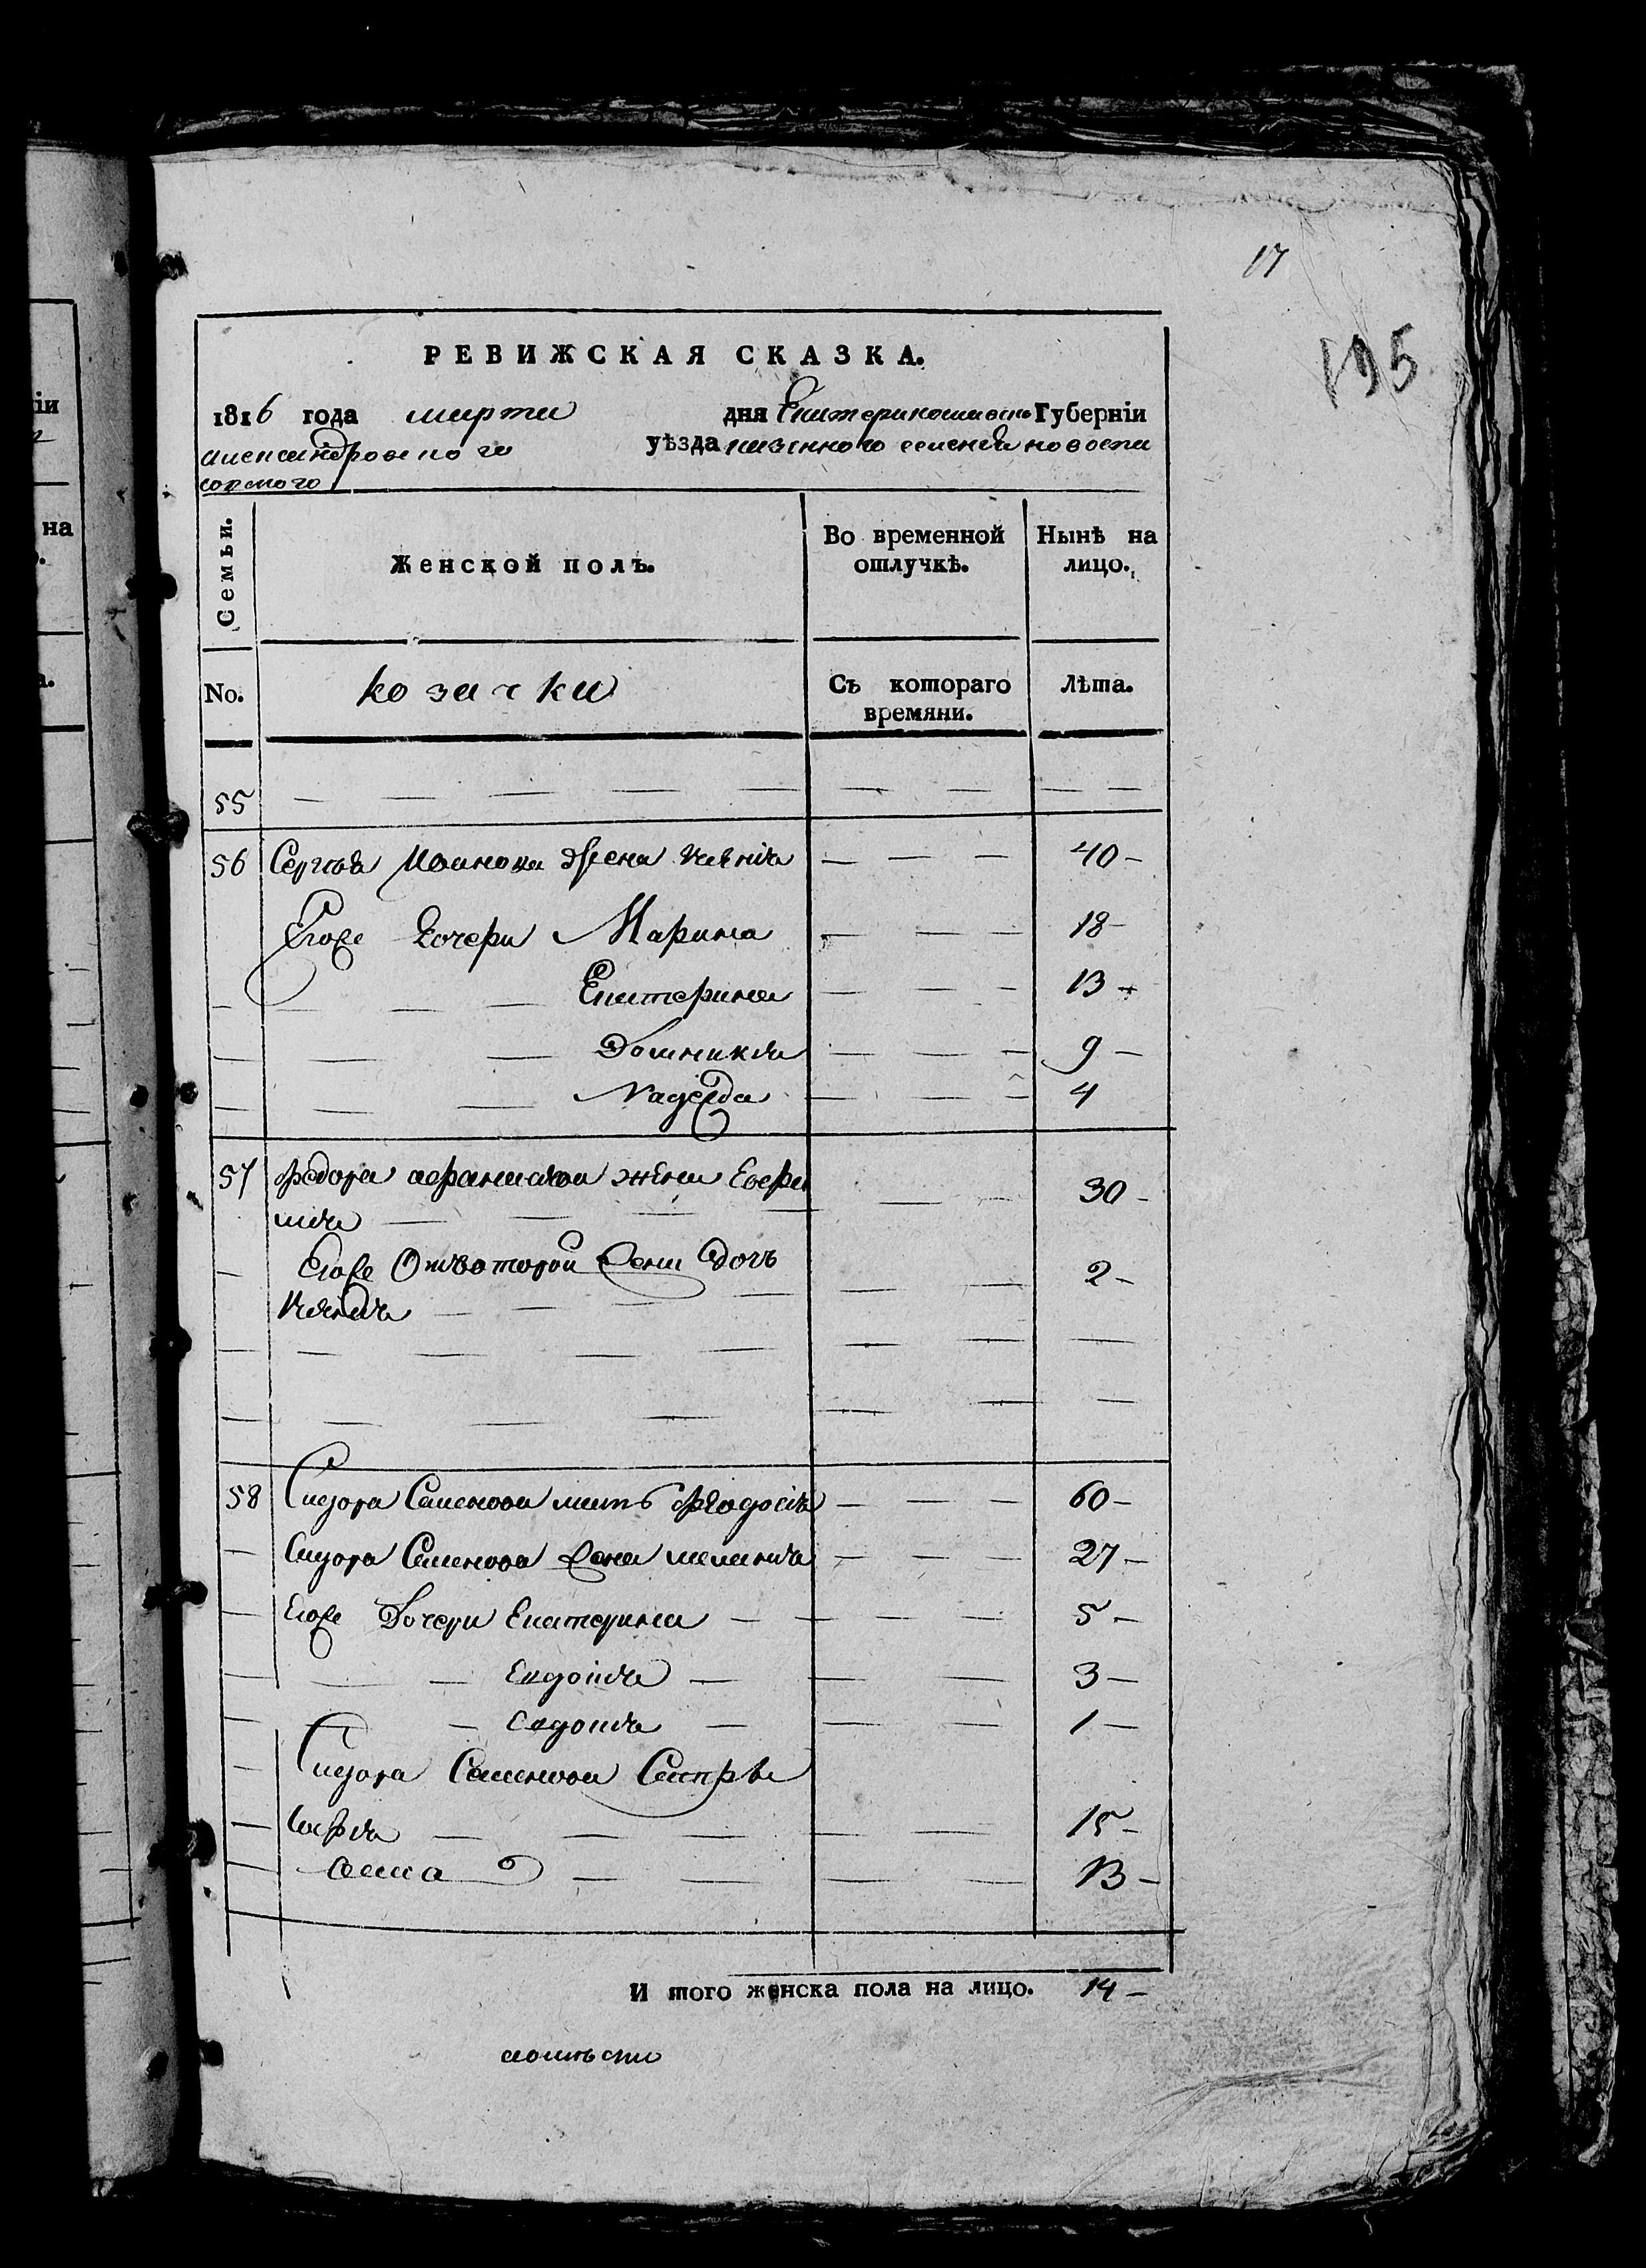 17
195
РЕВИЖСКАЯ СКАЗКА.
1816 года марта дня Екатеринославско Губерніи
александровского уѣзда казенного селения новоспа
сорского
Семьи. Женской полъ. Во временной Нынѣ на
отлучкѣ. лицо.
No. козачки Съ котораго Лѣта.
времяни.
55
56 Сергія Иванова жена Ксѣнія 40
Егоже дочери Марина 18
Екатерина 13
Домникія 9
Надежда 4
57 Федора афанасіева жена Евфи 30
мія
Егоже Отвоторои жени дочь 2
Ксенія
58 Сидора Семенова мать Феодосія 60
Сидора Семенова жена меланія 27
Егоже Дочери Екатерина 5
Евдокія 3
Евдокія 1
Сидора Семенова Сестри
Софія 15
анна 13
И того женска пола на лицо. 14